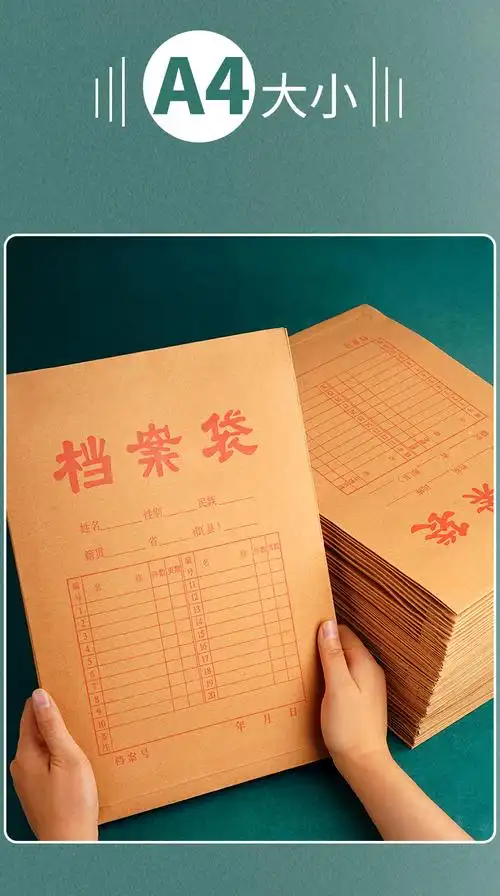 A4大小
档案袋
姓名______性别______民族______
籍贯______省______市(县)______
编号 名 称 件数 页数 编号 名 称 件数 页数
1 11
2 12
3 13
4 14
5 15
6 16
7 17
8 18
9 19
10 20
备注
年 月 日
档案号
档案袋